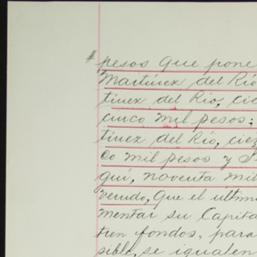 pesos que pone
Martinez del Rio
tinez del Rio, cie
cinco mil pesos;
tinez del Rio, cie
co mil pesos y J.
qui, noventa mil
venido, Que el ultim
mentar su Capita
ten fondos, para
sible, se igualen